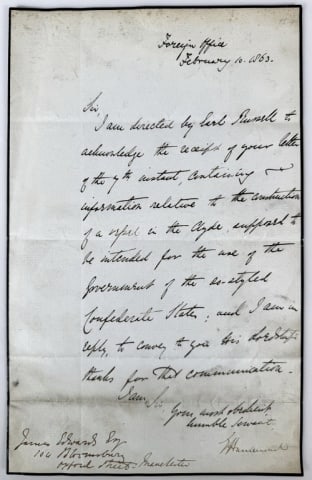 Foreign Office
February 10. 1863.
Sir,
I am directed by Earl Russell to
acknowledge the receipt of your letter
of the 7th instant, containing
information relative to the construction
of a vessel in the Clyde, supposed to
be intended for the use of the
Government of the so-styled
Confederate States; and I am in
reply, to convey to you His Lordship's
thanks for that communication.
I am, Sir,
Your most obedient
humble servant
EHammond
James Edwards Esq
104 Bloomsbury
Oxford Street, Manchester